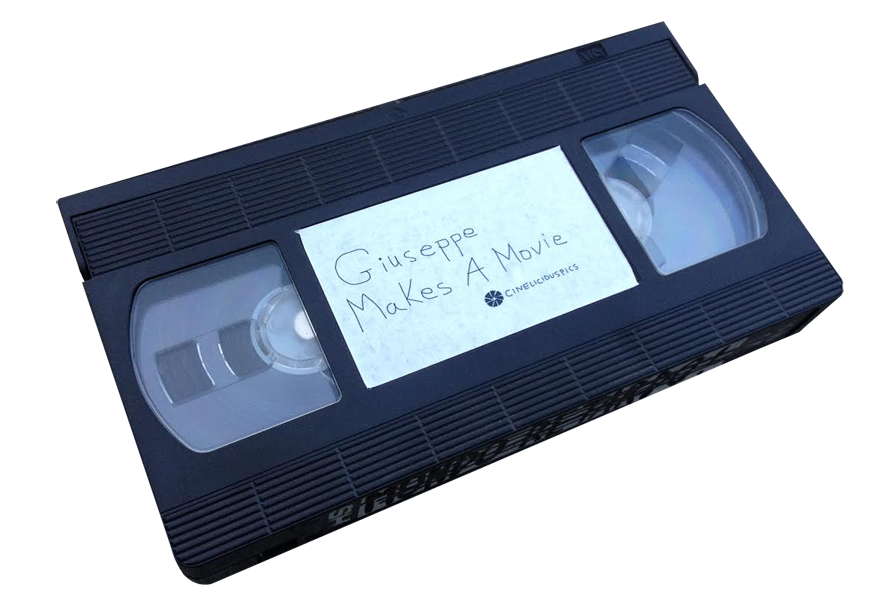 VHS
Giuseppe
Makes A Movie
CINELICIOUSPICS